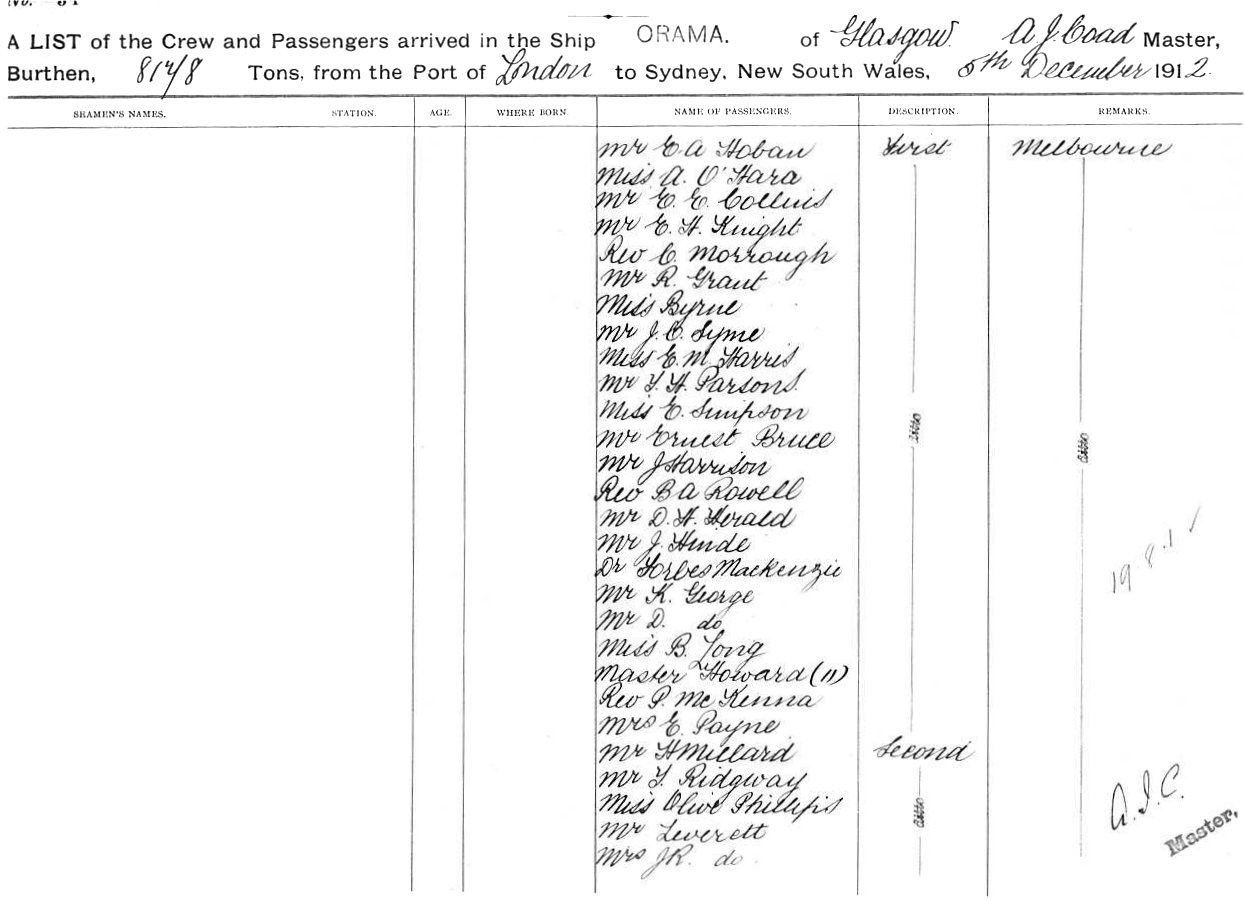 A LIST of the Crew and Passengers arrived in the Ship ORAMA. of Glasgow. A J. Coad Master,
Burthen, Tons, from the Port of London to Sydney, New South Wales, 5th December 1912.
SEAMEN'S NAMES. STATION. AGE. WHERE BORN. NAME OF PASSENGERS. DESCRIPTION. REMARKS.
Mr E. A Hoban First Melbourne
Miss A. O'Hara
Mr E. E. Collins
Mr E. H. Knight
Rev C. Morrough
Mr R. Grant
Miss Byrne
Mr J. C. Syme
Miss E. M. Harris
Mr F. H. Parsons.
Miss E. Simpson ditto
Mr Ernest Bruce ditto
Mr J Harrison
Rev B A Rowell
Mr D. H. Herald
Mr J. Hinde
Dr Forbes Mackenzie
Mr K. George
Mr D. do
Miss B. Long
Master Howard (11)
Rev P. McKenna
Mrs E. Payne
Mr H Millard Second
Mr F. Ridgway
Miss Olive Phillips ditto
Mr Leverett
Mrs J R. do
A. J. C.
Master.